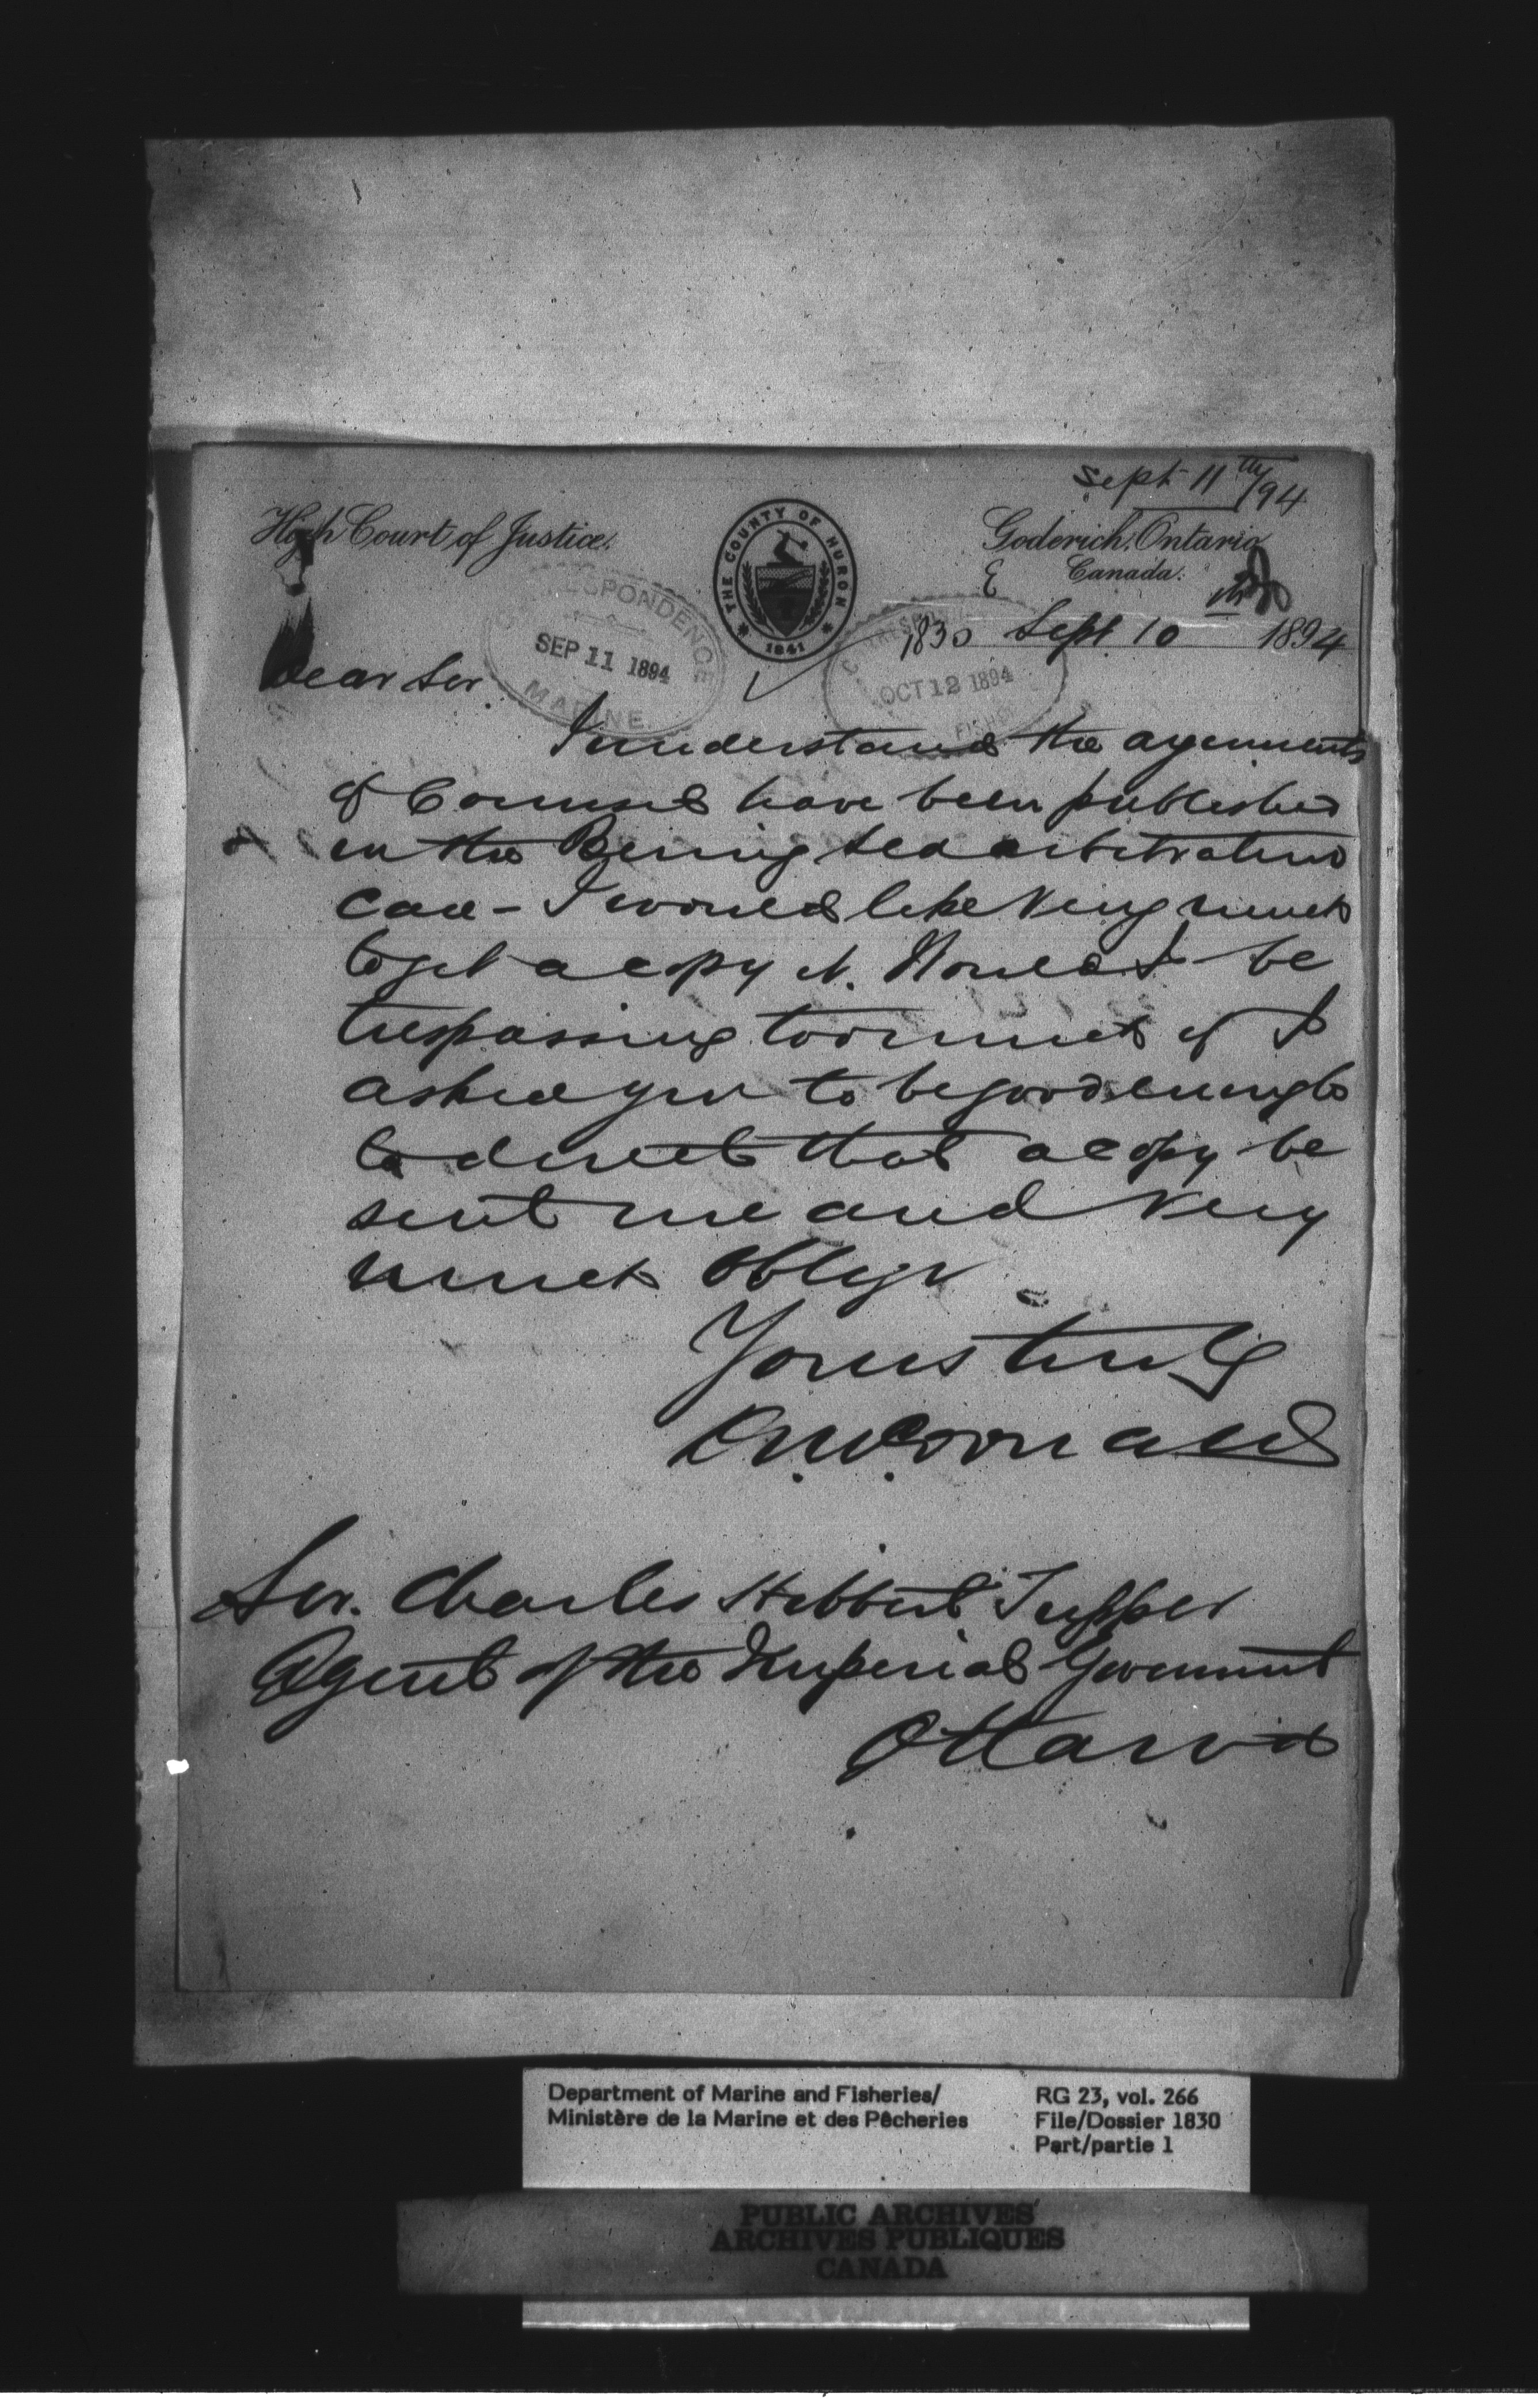 Sept 11th/94
High Court of Justice.
THE COUNTY OF HURON
1841
Goderich, Ontario
Canada.
1830 Sept 10 1894
CORRESPONDENCE
SEP 11 1894
MARINE.
OCT 12 1894
FISHE
Dear Sir
I understand the arguments
of Counsel have been published
in the Bering Sea arbitration
case – I would like very much
to get a copy of it. Would I be
trespassing too much if I
asked you to be good enough
to direct that a copy be
sent me and very
much oblige
Yours truly
Sir. Charles Hibbert Tupper
Agent of the Imperial Government
Ottawa
Department of Marine and Fisheries/
Ministère de la Marine et des Pêcheries
RG 23, vol. 266
File/Dossier 1830
Part/partie 1
PUBLIC ARCHIVES
ARCHIVES PUBLIQUES
CANADA